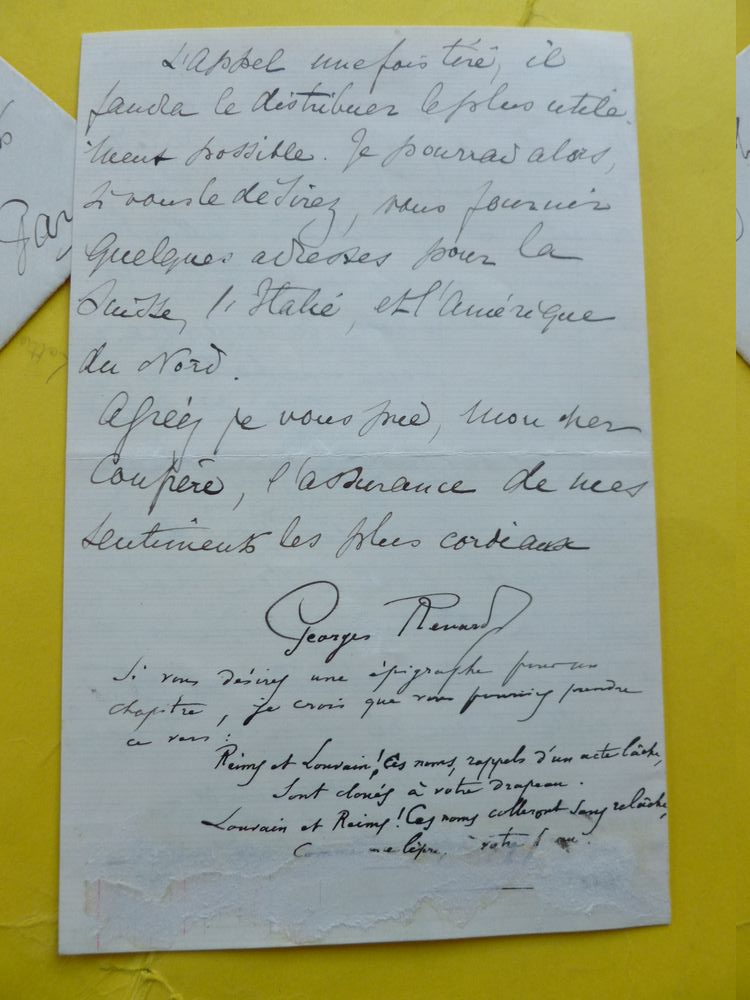 L'appel une fois tiré, il
faudra le distribuer le plus utile-
ment possible. Je pourrai alors,
si vous le désirez, vous fournir
quelques adresses pour la
Suisse, l'Italie, et l'Amérique
du Nord.
Agréez je vous prie, mon cher
Confrère, l'assurance de mes
sentiments les plus cordiaux
Georges Renard
Si vous désirez une épigraphe pour un
chapitre, je crois que vous pourriez prendre
ce vers :
Reims et Louvain! Ces noms, rappels d'un acte lâche,
Sont cloués à votre drapeau.
Louvain et Reims! Ces noms colleront sans relâche,
lèpre, à votre